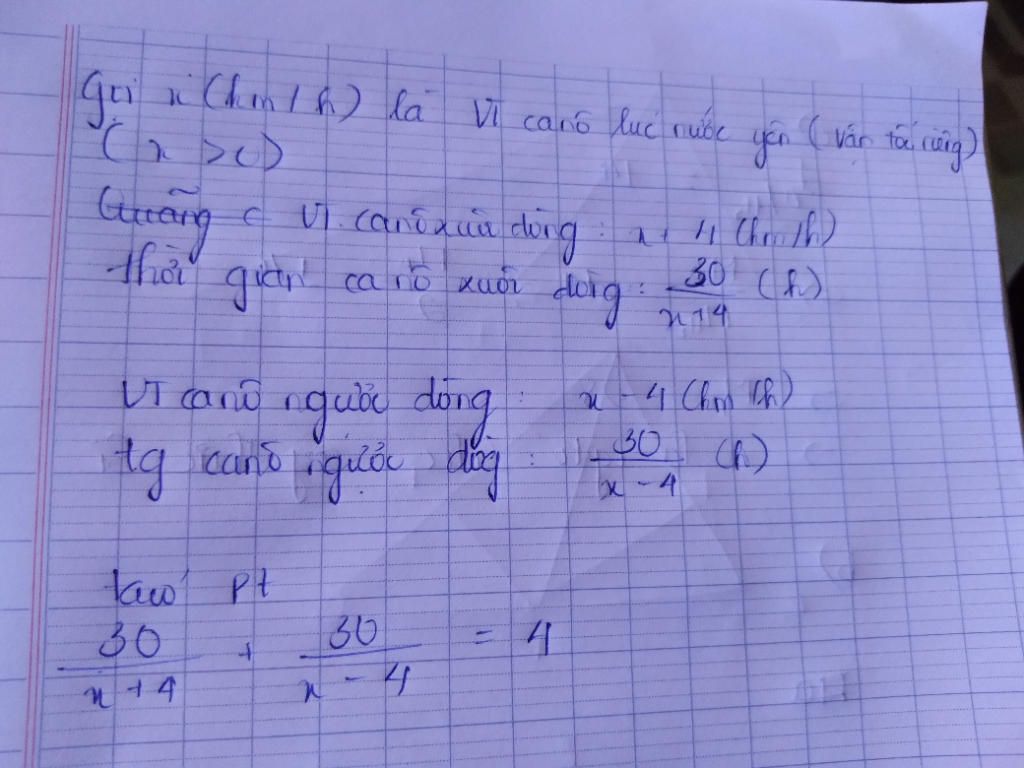 Gọi x (km/h) là VT canô lúc nước yên (vận tốc riêng)
( x > )
Quãng c VT canô xuôi dòng : x + 4 (km/h)
thời gian ca nô xuôi dòng : 30/(x+4) (h)
VT canô ngược dòng : x - 4 (km/h)
tg canô ngược dòg : 30/(x - 4) (h)
ta có pt
30/(x+4) + 30/(x - 4) = 4